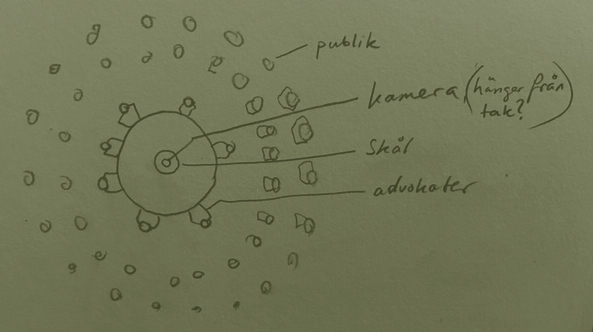 publik
kamera (hänger från
tak?)
skål
advokater